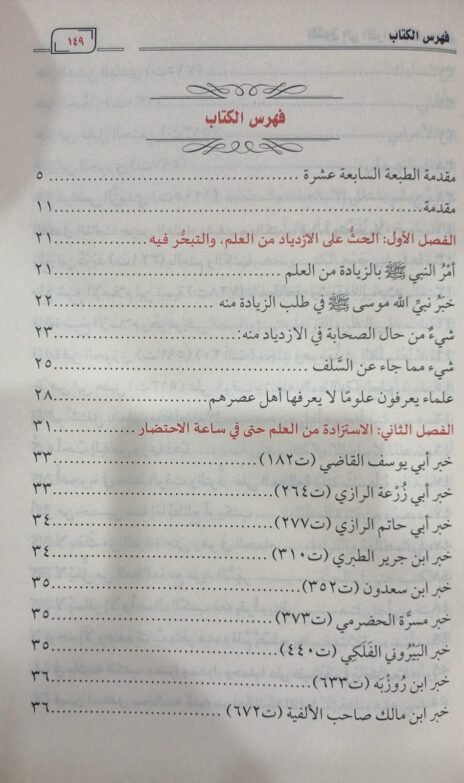 فهرس الكتاب
١٤٩
فهرس الكتاب
مقدمة الطبعة السابعة عشرة ..... ٥
مقدمة ..... ١١
الفصل الأول: الحثُّ على الازدياد من العلم، والتبحُّر فيه ..... ٢١
أمْرُ النبي ﷺ بالزيادة من العلم ..... ٢١
خبَرُ نبيِّ الله موسى ﷺ في طلب الزيادة منه ..... ٢٢
شيءٌ من حال الصحابة في الازدياد منه: ..... ٢٣
شيء مما جاء عن السَّلف ..... ٢٥
علماء يعرفون علومًا لا يعرفها أهل عصرهم ..... ٢٨
الفصل الثاني: الاستزادة من العلم حتى في ساعة الاحتضار ..... ٣١
خبر أبي يوسف القاضي (ت١٨٢) ..... ٣٣
خبر أبي زُرْعة الرازي (ت٢٦٤) ..... ٣٣
خبر أبي حاتم الرازي (ت٢٧٧) ..... ٣٤
خبر ابن جرير الطبري (ت٣١٠) ..... ٣٤
خبر ابن سعدون (ت٣٥٢) ..... ٣٥
خبر مسرَّة الحضرمي (ت٣٧٣) ..... ٣٥
خبر البَيْروني الفَلَكي (ت٤٤٠) ..... ٣٥
خبر ابن رُوزْبَه (ت٦٣٣) ..... ٣٦
خبر ابن مالك صاحب الألفية (ت٦٧٢) ..... ٣٦